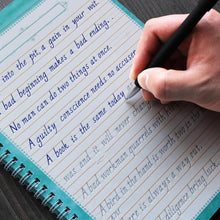 into the pit, a gain in your wit.
bad beginning makes a bad ending.
No man can do two things at once.
A guilty conscience needs no accuser
A book is the same today
was and it will never change
A bad workman quarrels with
A bird in the hand is worth two in
There is always a way
diligence